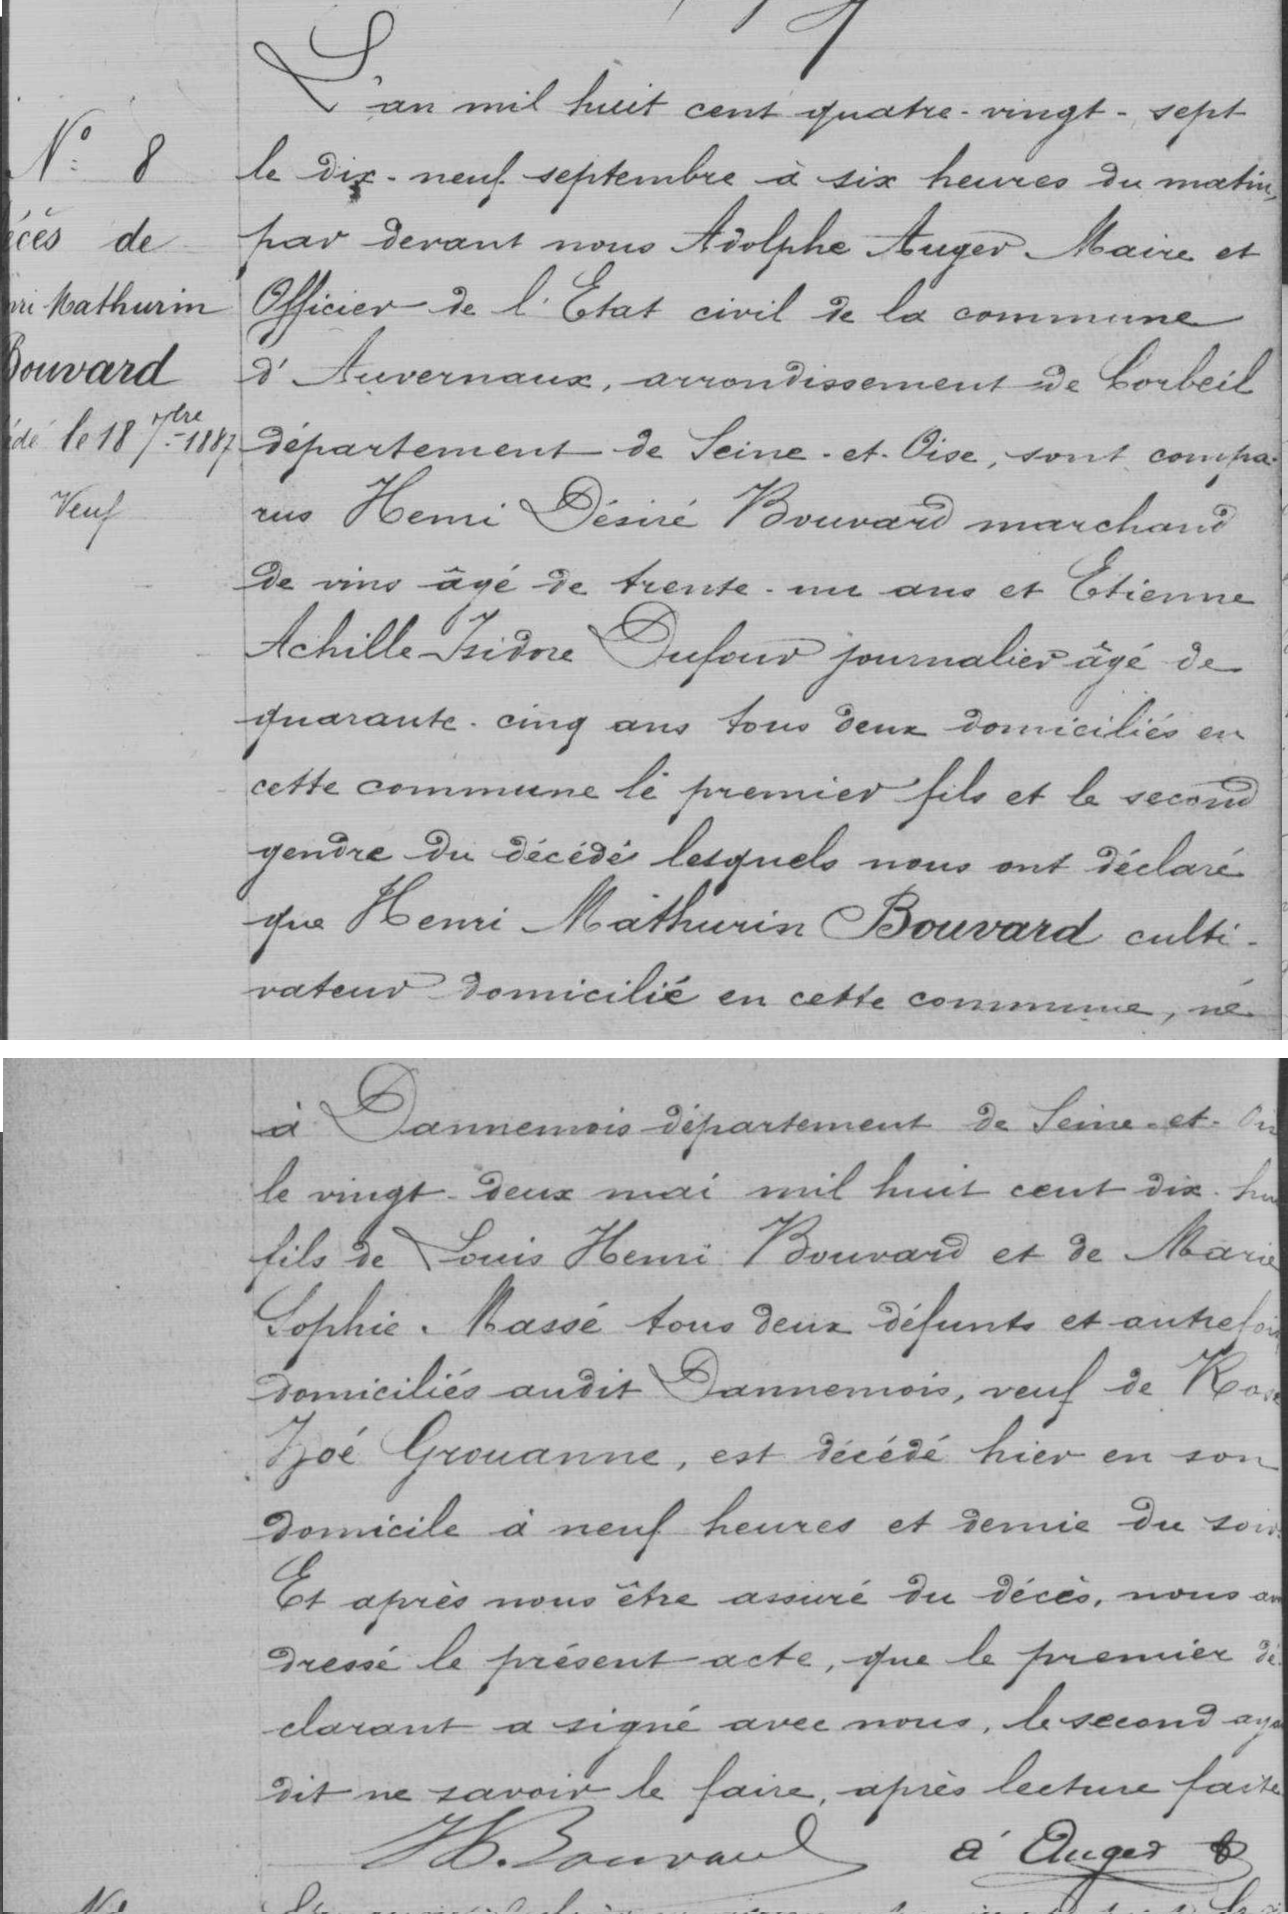 L'an mil huit cent quatre-vingt-sept
N° 8
le dix-neuf septembre à six heures du matin,
écès de
par devant nous Adolphe Auger Maire et
ri Mathurin
Officier de l'Etat civil de la commune
Bouvard
d'Auvernaux, arrondissement de Corbeil
édé le 18 7bre 1887
département de Seine-et-Oise, sont compa-
Veuf
rus Henri Désiré Bouvard marchand
de vins âgé de trente-un ans et Etienne
Achille Isidore Dufour journalier âgé de
quarante-cinq ans tous deux domiciliés en
cette commune le premier fils et le second
gendre du décédé lesquels nous ont déclaré
que Henri Mathurin Bouvard culti-
vateur domicilié en cette commune, né
à Dannemois département de Seine-et-Oi
le vingt-deux mai mil huit cent dix-hu
fils de Louis Henri Bouvard et de Marie
Sophie Massé tous deux défunts et autrefois
domiciliés audit Dannemois, veuf de Rose
Zoé Grouanne, est décédé hier en son
domicile à neuf heures et demie du soir.
Et après nous être assuré du décès, nous av
dressé le présent acte, que le premier dé-
clarant a signé avec nous, le second aya
dit ne savoir le faire, après lecture faite
HD. Bouvard a Auger